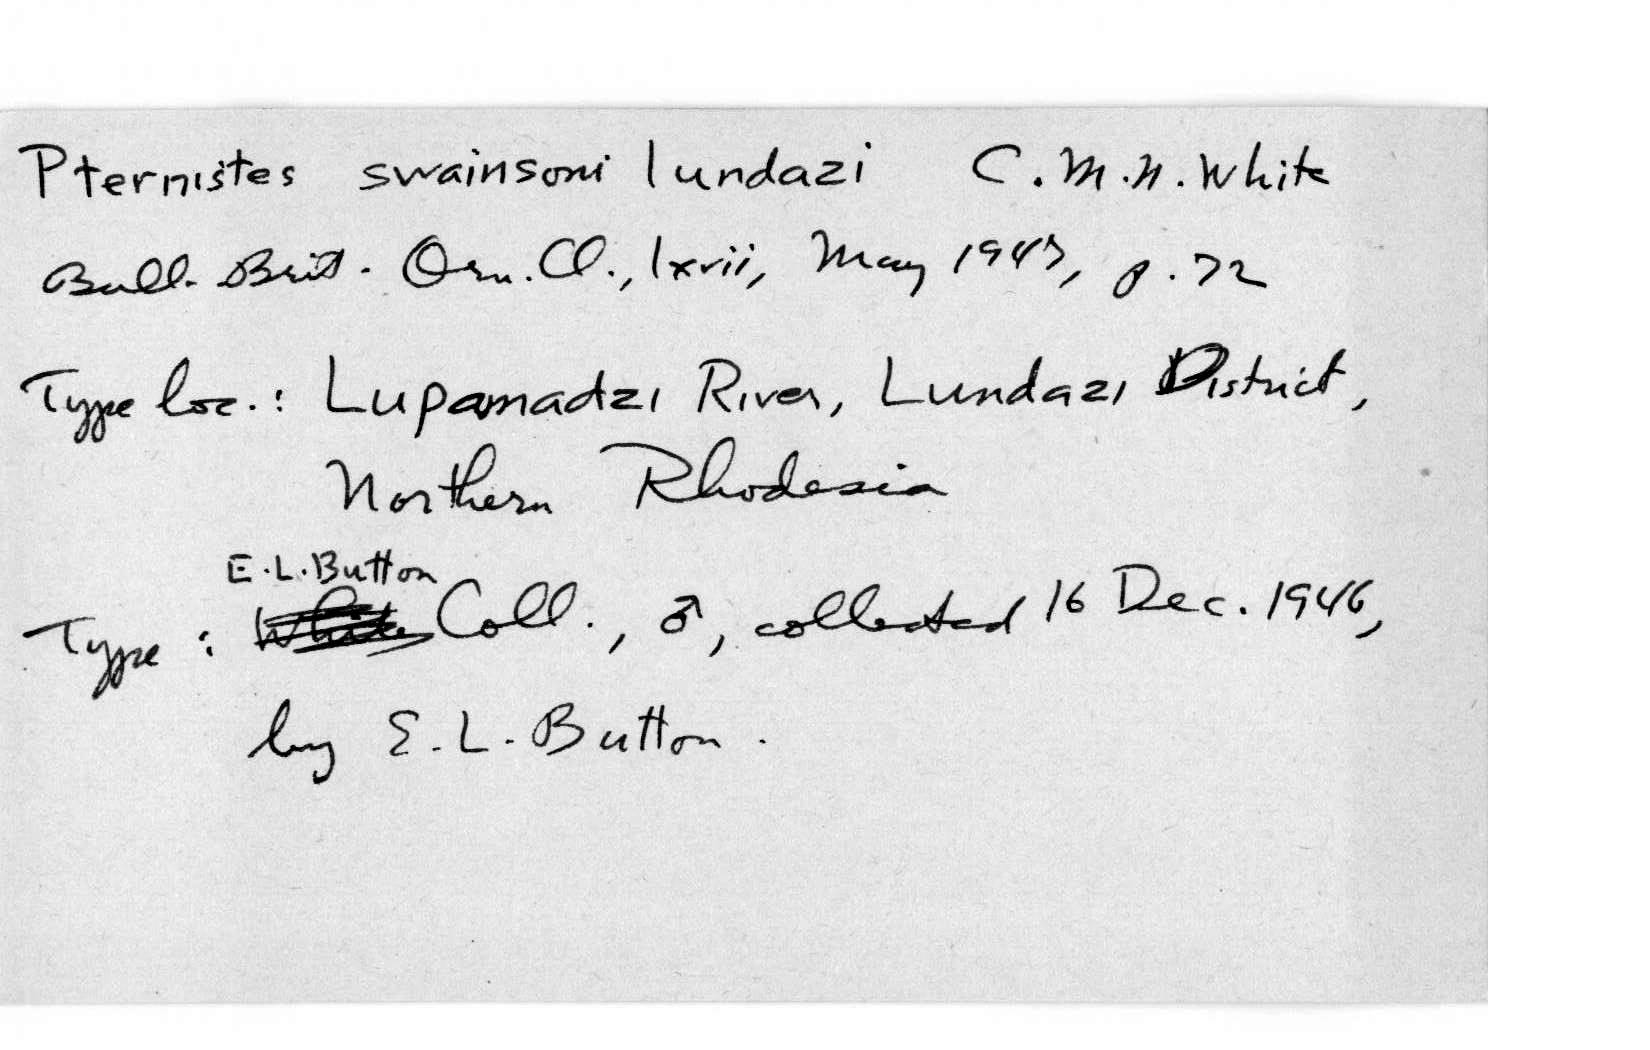 Pternistes swainsoni lundazi C.M.N. White
Bull. Brit. Orn. Cl., lxvii, May 1947, p. 72
Type loc.: Lupamadzi River, Lundazi District,
Northern Rhodesia
E.L. Button
Type: White Coll., ♂, collected 16 Dec. 1946,
by E.L. Button.